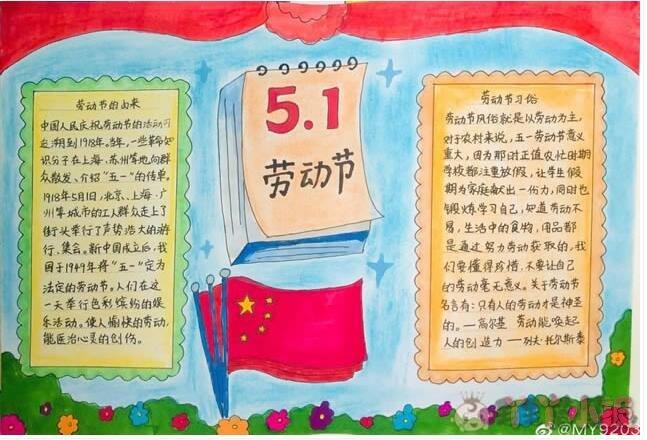 劳动节的由来
中国人民庆祝劳动节的活动可
追溯到1918年。当年,一些革命知
识分子在上海、苏州等地向群
众散发、介绍“五一”的传单。
1918年5月1日,北京、上海、广
州等城市的工人群众走上了
街头举行了声势浩大的游
行、集会。新中国成立后,我
国于1949年将“五一”定为
法定的劳动节。人们在这
一天举行色彩缤纷的娱
乐活动。使人愉快的劳动,
能医治心灵的创伤。
5.1
劳动节
劳动节习俗
劳动节风俗就是以劳动为主,
对于农村来说,五一劳动节意义
重大,因为那时正值农忙时期
学校都注重放假,让学生假
期为家庭献出一份力,同时也
锻炼学习自己,知道劳动不
易,生活中的食物,用品都
是通过努力劳动获取的,我
们要懂得珍惜,不要让自己
的劳动毫无意义。关于劳动节
名言有:只有人的劳动才是神圣
的。—高尔基 劳动能唤起
人的创造力—列夫·托尔斯泰
@MY9203